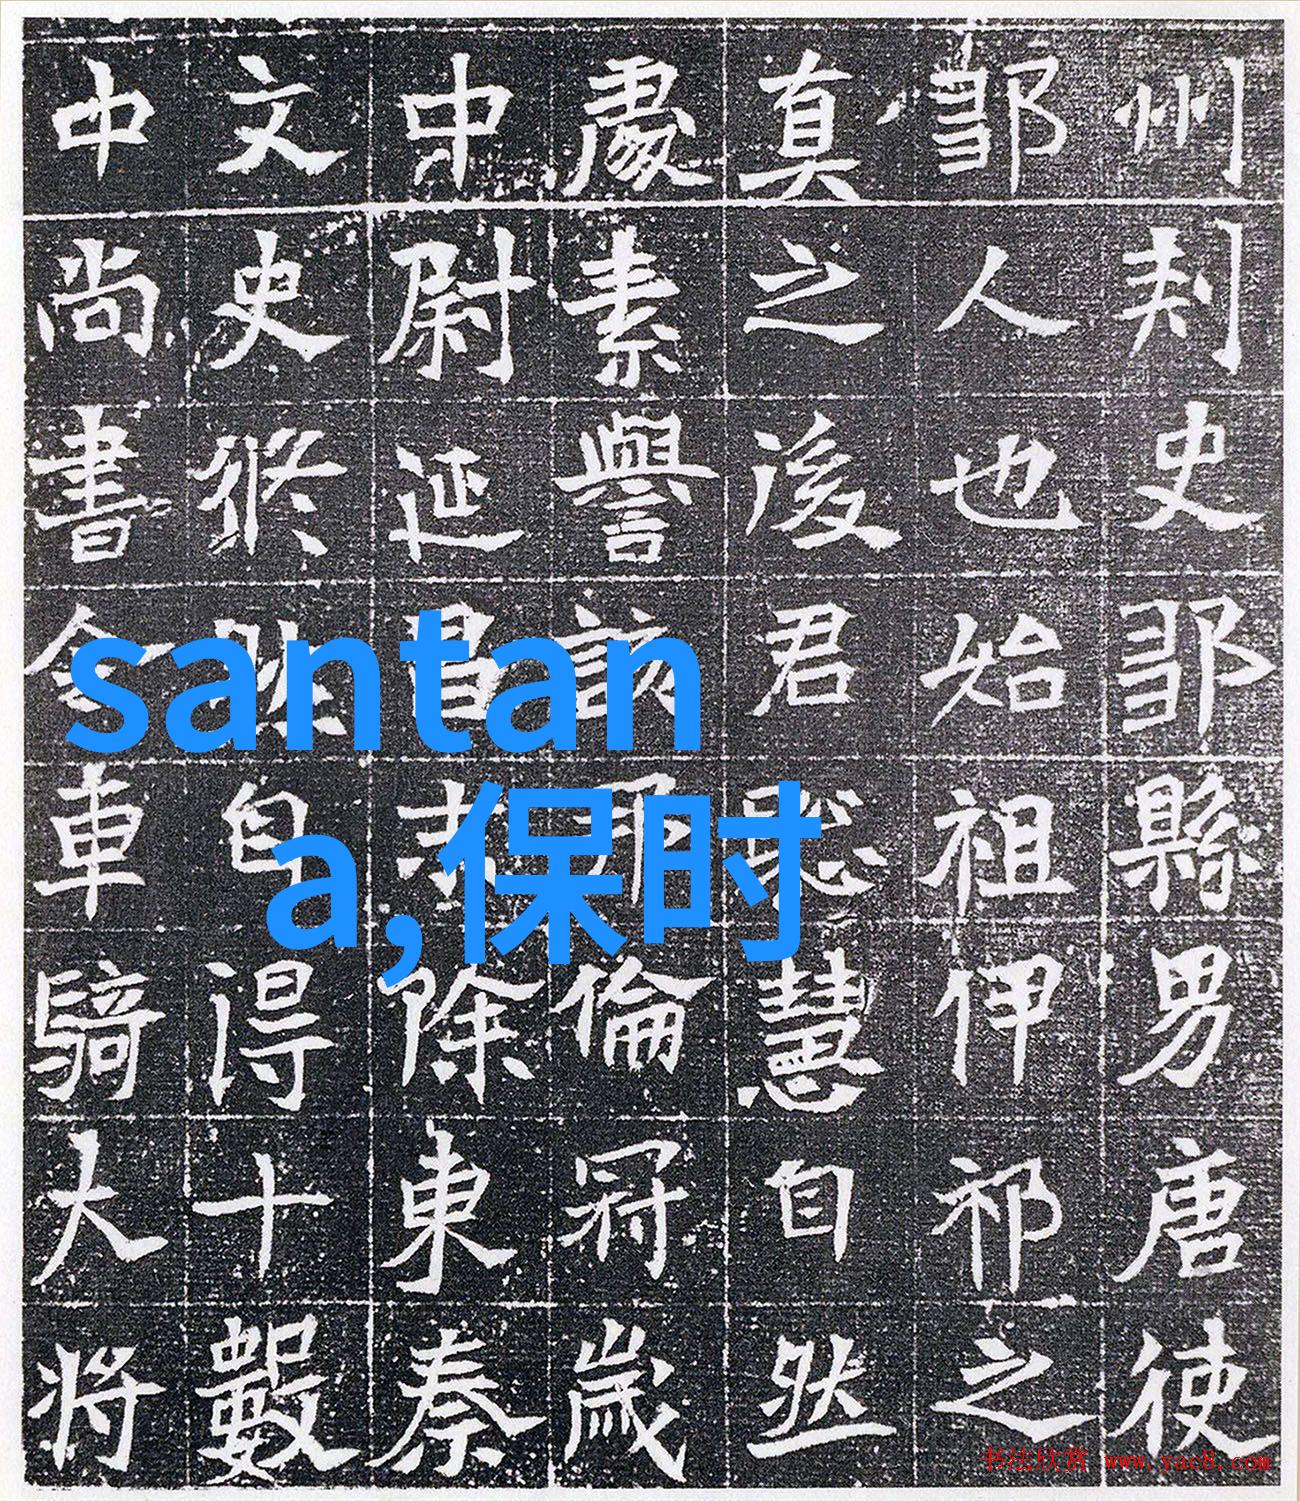 州刾史鄒縣男唐使
鄒人也始祖伊祁之
真之後君聰慧自然
處素譽該倫冠歲
中尉延昌除東秦
文史修自得十數
中尚書令車騎大將
santan
a,保时
书法欣赏 www.yac8.com